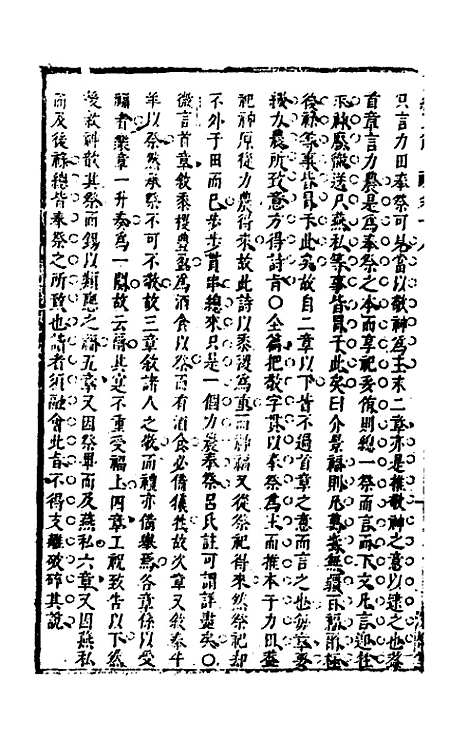 只言力田奉祭可見當以敬神為主末二章亦是推敬神之意以達之也蓋
首章言力農是為奉祭之本而享祀妥侑則總一祭而言而下文凡言迎牲
求神廢徹送尸燕私等事皆冒于此矣曰介景福則凡萬壽無疆百福酢
後祿等事皆冒于此矣故自二章以下皆不過首章之意而言之也每章要
我力農所致意方得詩言○全篇把敬字以奉祭為主而推本于力田蓋
祀神原從力農得來故此詩以黍稷為重而神福又從祭祀得來然祭祀却
不外于田而已步步貫串總來只是一個力農奉祭呂氏註可謂詳盡矣○
微言首章敘黍稷豐盈為酒食以祭而有酒食必備犧牲故次章又敘奉牛
羊以祭然承祭不可不敬故三章敘諸人之敬而禮亦備舉焉各章係以受
福者樂章一升奏為一闋故云講其寔不重受福上四章工祝致告以下然
後敘神歆其祭而錫以類應之辭五章又因祭畢而及燕私六章又因燕私
而及後祿總皆奉祭之所致也讀者須融會此旨不得支離破碎其說